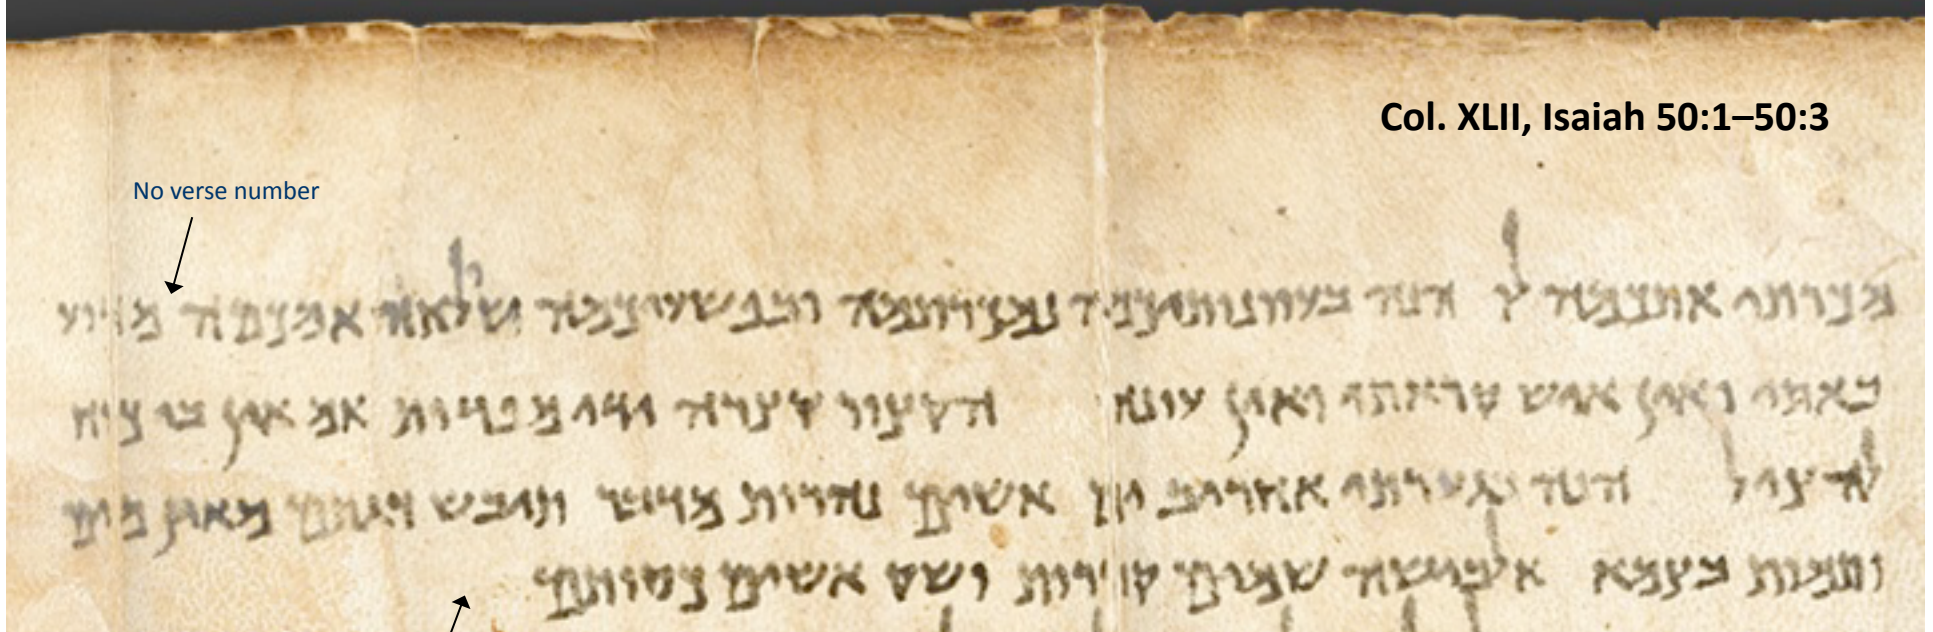 Col. XLII, Isaiah 50:1–50:3
No verse number
מכרתי אתכמה לו הנה בעוונותיכמה נמכרתמה ובפשעיכמה אמכמה מדוע
באתי ואין איש קראתי ואין עונה הקצור קצרה ידי מפדות אמ אין בי כוח
להציל הנה בגערתי אחריב ים אשים נהרות מדבר תיבש דגתם מאין מים
ותמות בצמא אלבישה שמים קדרות ושק אשים כסותם